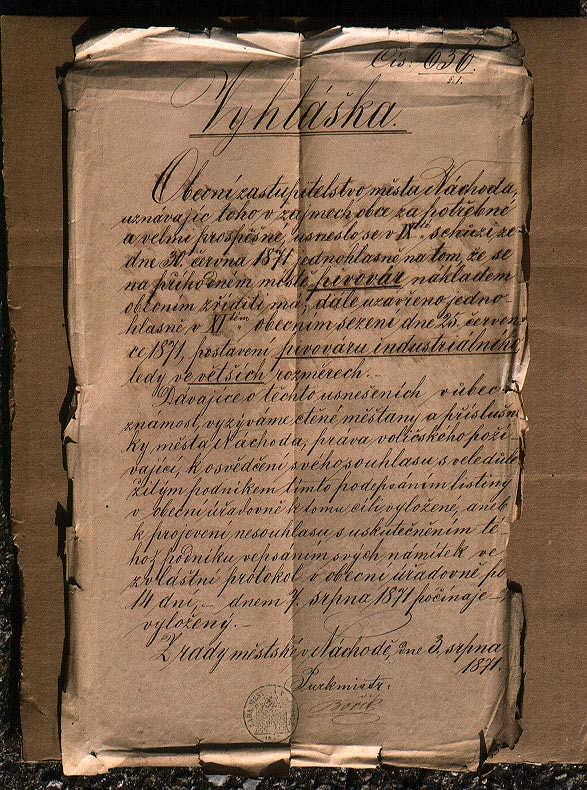 Čís. 636.
Vyhláška.
Obecní zastupitelstvo města Náchoda,
uznávajíc toho v zájmech obce za potřebné
a velmi prospěšné, usneslo se v IXté schůzi ze
dne 30. června 1871 jednohlasně na tom, že se
na příhodném místě pivovár nákladem
obecním zříditi má, dále uzavřeno jedno-
hlasně v XItém obecním sezení dne 25. červen-
ce 1871, postavení pivováru industriálního
tedy ve větších rozměrech. –
Dávajíce o těchto usnešeních v úbec
známost, vyzýváme ctěné měštany a přísluš-
ky města Náchoda, práva voličského poží-
vající, k osvědčení svého souhlasu s veledůle-
žitým podnikem tímto podepsáním listiny
v obecní úřadovně k tomu cíli vyložené, aneb
k projevení nesouhlasu s uskutečněním té-
hož podniku vepsáním svých námitek ve
zvláštní protokol v obecní úřadovně po
14 dní, – dnem 7. srpna 1871 počínaje, –
vyložený. –
Z rady městské v Náchodě, dne 3. srpna
1871.
Purkmistr.